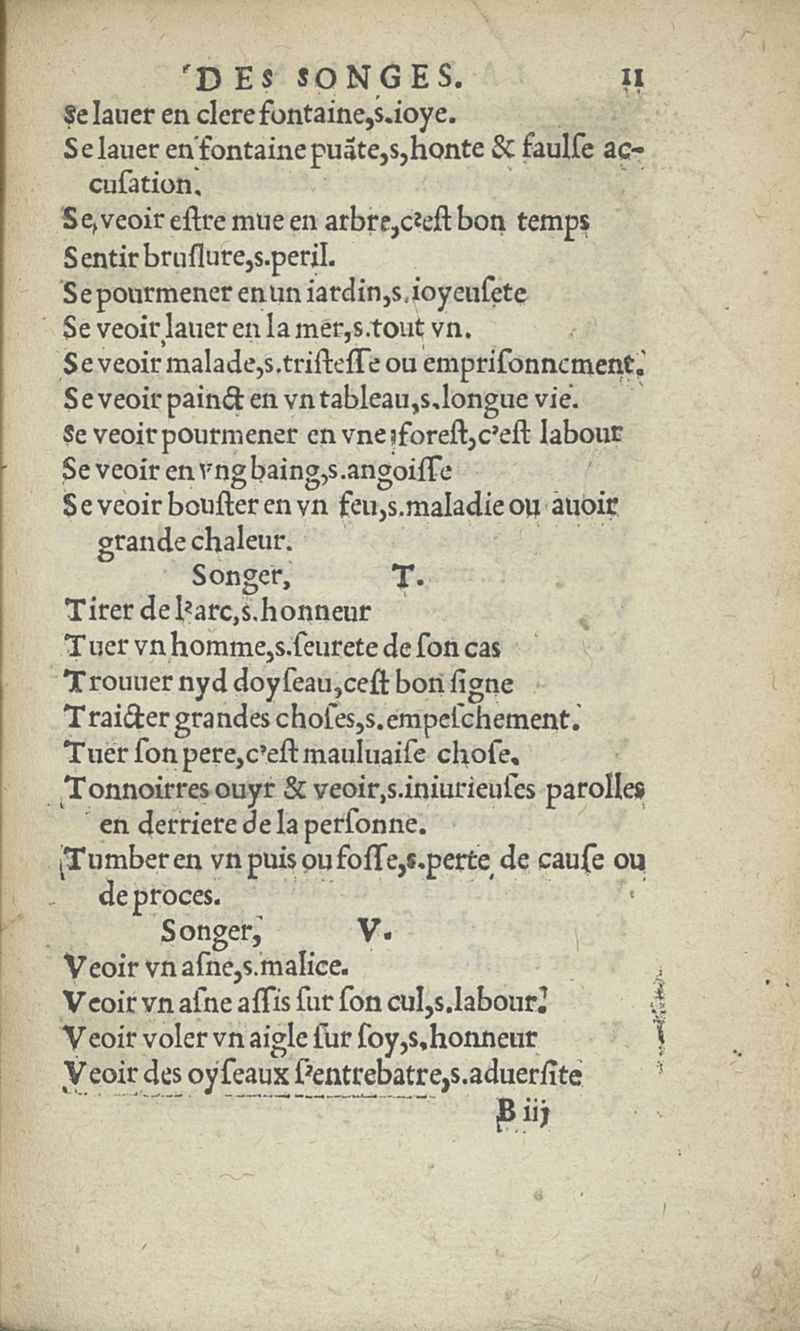 DES SONGES. 11
Se lauer en clere fontaine,s.ioye.
Se lauer en fontaine puãte,s,honte & faulſe ac-
cuſation.
Se veoir eſtre mue en arbre,c'eſt bon temps
Sentir bruſlure,s.peril.
Se pourmener en un iardin,s.ioyeuſete
Se veoir lauer en la mer,s.tout vn.
Se veoir malade,s.triſteſſe ou empriſonnement.
Se veoir painct en vn tableau,s.longue vie.
Se veoir pourmener en vne foreſt,c'eſt labour
Se veoir en vng baing,s.angoiſſe
Se veoir bouſter en vn feu,s.maladie ou auoir
grande chaleur.
Songer, T.
Tirer de l'arc,s.honneur
Tuer vn homme,s.ſeurete de ſon cas
Trouuer nyd doyſeau,ceſt bon ſigne
Traicter grandes choſes,s.empeſchement.
Tuer ſon pere,c'eſt mauluaiſe choſe,
Tonnoirres ouyr & veoir,s.iniurieuſes parolles
en derriere de la perſonne.
Tumber en vn puis ou foſſe,s.perte de cauſe ou
de proces.
Songer, V.
Veoir vn aſne,s.malice.
Veoir vn aſne aſſis ſur ſon cul,s.labour.
Veoir voler vn aigle ſur ſoy,s,honneur
Veoir des oyſeaux ſ'entrebatre,s.aduerſite
B iij